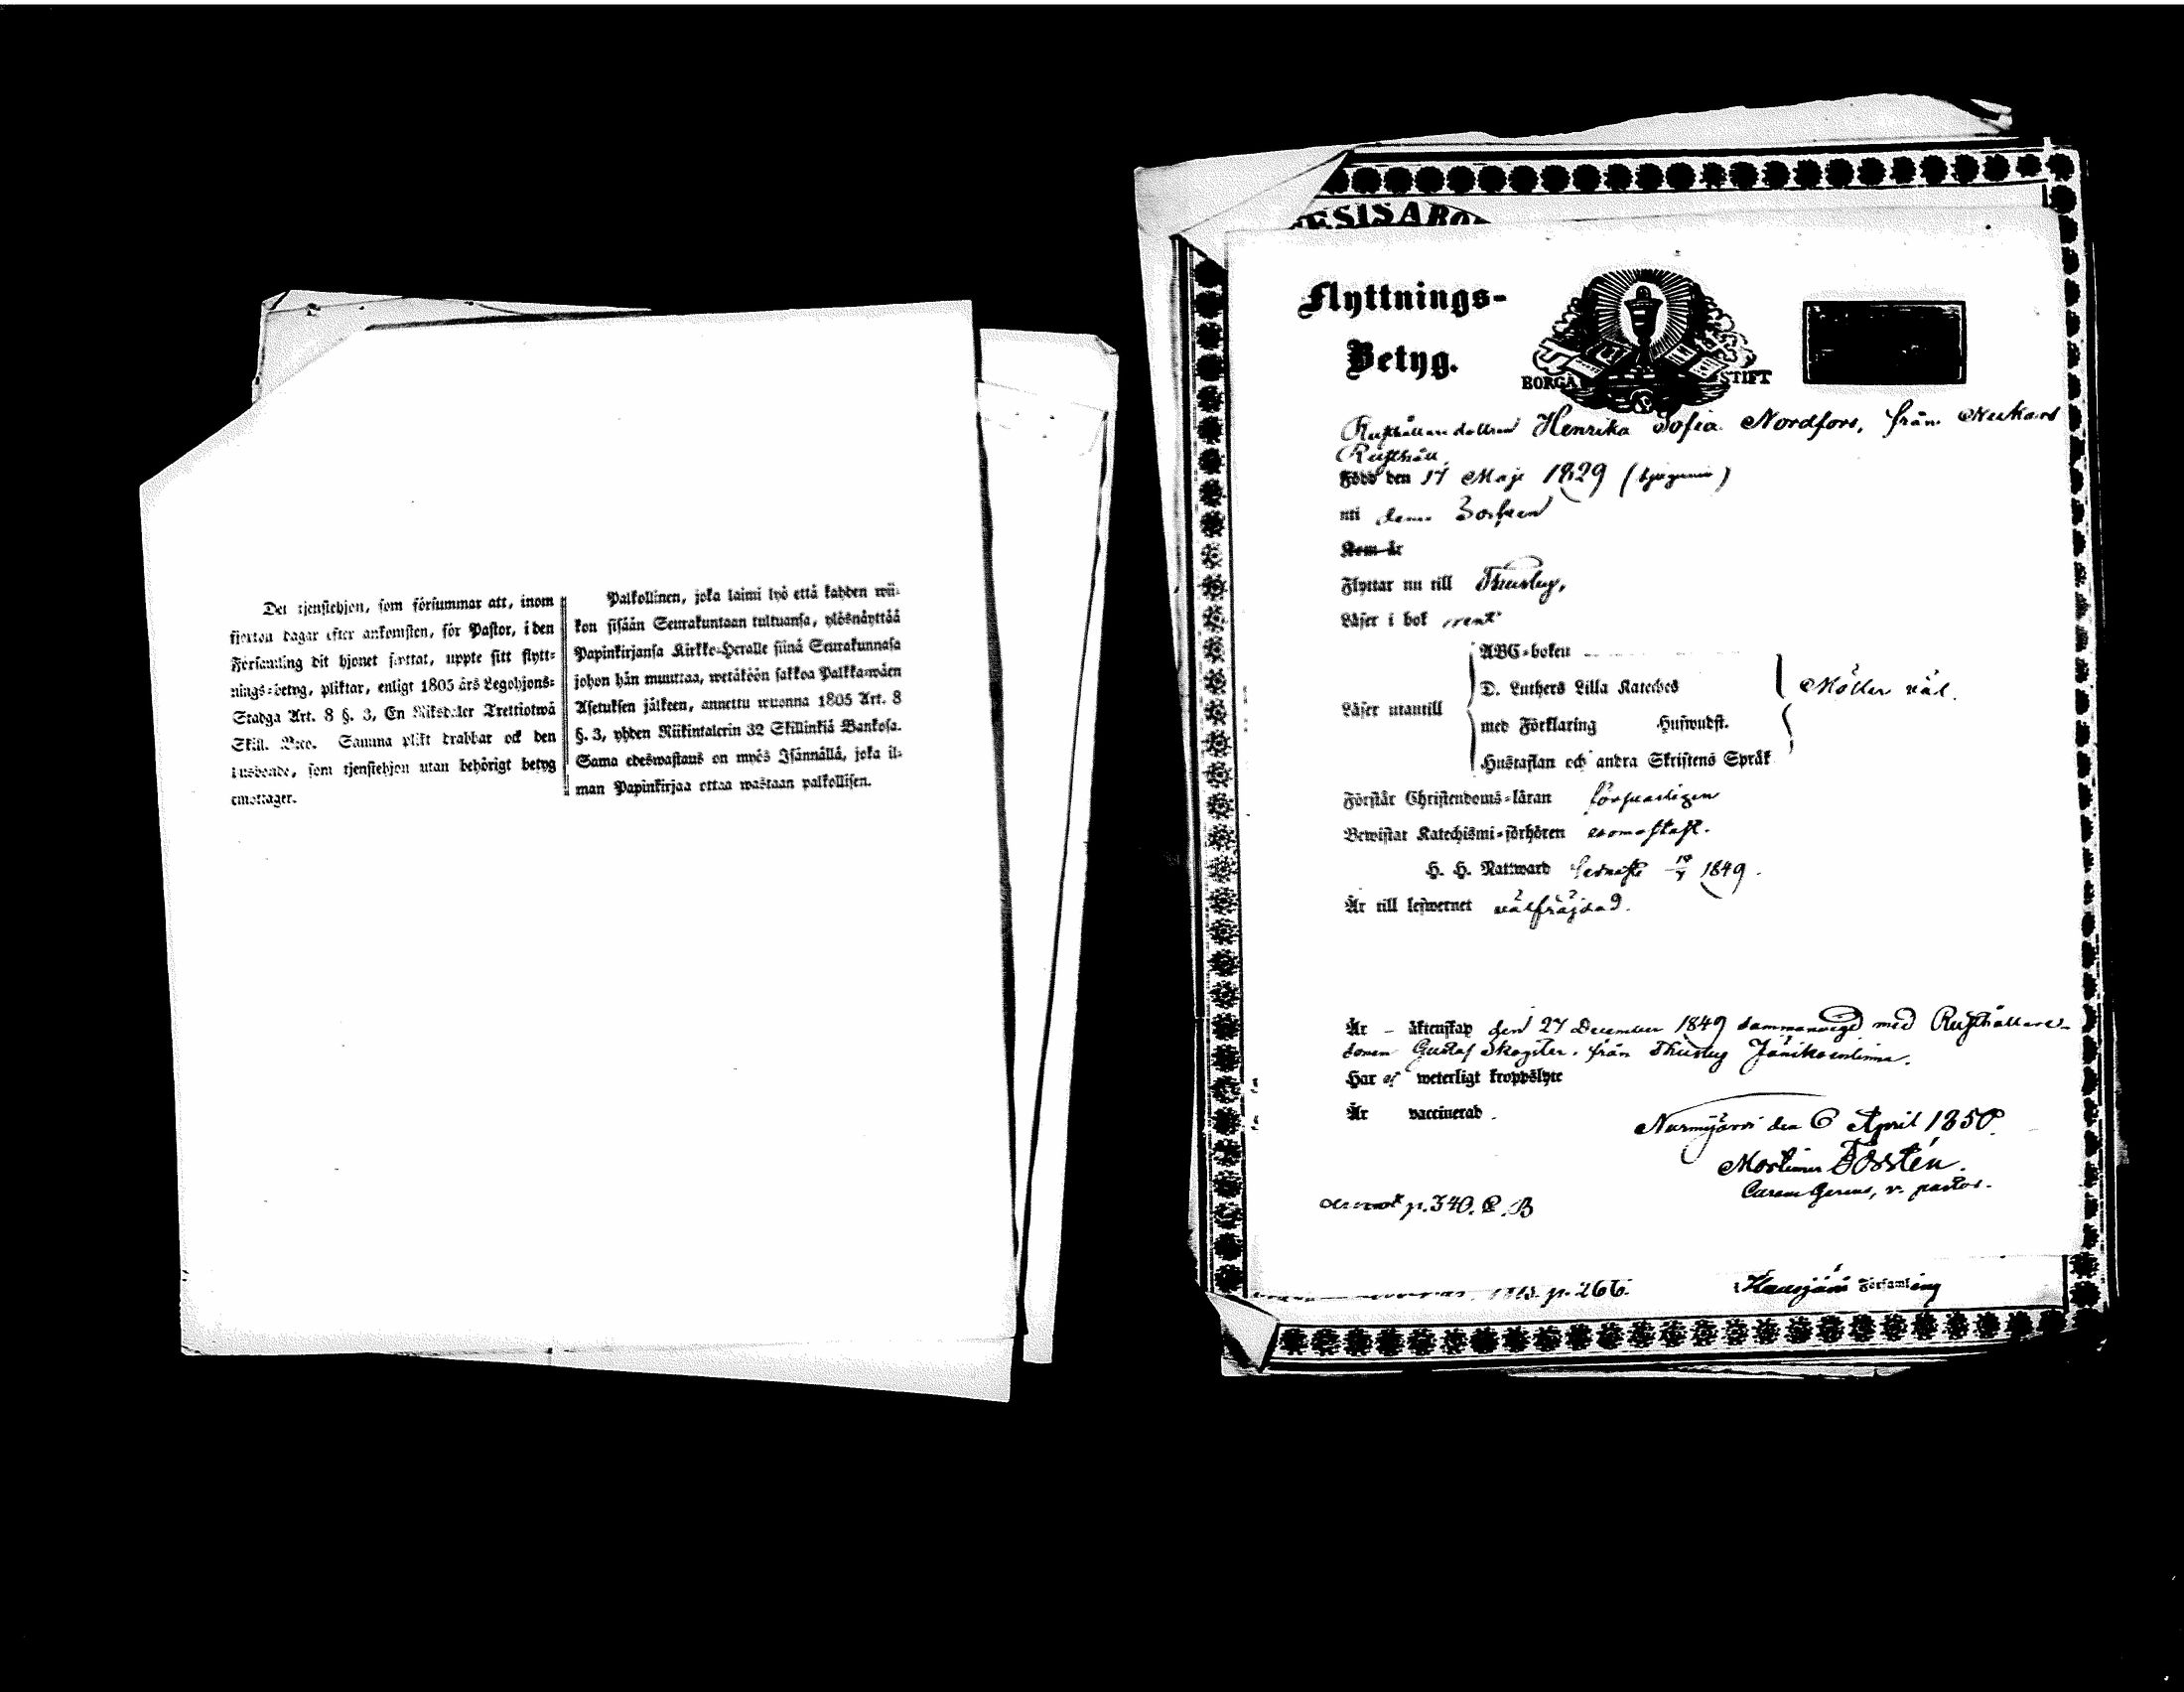 Det tjenstehjon, som försummar att, inom
fjorton dagar efter ankomsten, för Pastor, i den
Församling dit hjonet flyttat, uppte sitt flytt-
nings-betyg, pliktar, enligt 1805 års Legohjons-
Stadga Art. 8 §. 3, En Riksdaler Trettiotwå
Skill. B:co. Samma plikt drabbar ock den
husbonde, som tjenstehjon utan behörigt betyg
emottager.
Palkollinen, joka laimi lyö että kahden wii-
kon sisään Seurakuntaan tultuansa, ylösnäyttää
Papinkirjansa Kirkko-Herralle siinä Seurakunnasa
johon hän muuttaa, wetäköön sakkoa Palkkawäen
Asetuksen jälkeen, annettu wuonna 1805 Art. 8
§. 3, yhden Riikintalerin 32 Skillinkiä Bankosa.
Sama edeswastaus on myös Isännällä, joka il-
man Papinkirjaa ottaa wastaan palkollisen.
Flyttnings-
Betyg.
BORGÅ STIFT
Rusthållaredottren Henrika Sofia Nordfors, från
Rusthåll
Född den 17 Maji 1829
uti denna Socken
Kom år
Flyttar nu till Thusby,
Läser i bok rent
ABC-boken
D. Luthers Lilla Kateches
med Förklaring Hufwudst.
Hustaflan och andra Skriftens Språk
Läser utantill
Möller väl.
Förstår Christendoms-läran försvarligen
Bewistat Katechismi-förhören
H. H. Nattward 1849.
Är till lefwernet välfräjdad.
Är äktenskap den 27 December 1849 sammanvigd med Rusthållare-
sonen Gustaf från Thusby
Har ej weterligt kroppslyte
Är vaccinerad.
Nurmijärvi den 6 April 1850.
p. 340. B
v. pastor.
p. 266.
Hausjärvi Församling